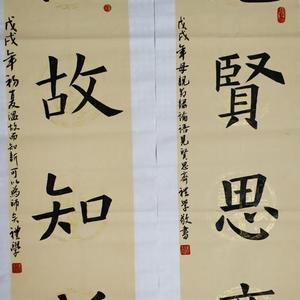 賢思
戊戌年母親節錄論語見賢思齊禮學敬書
故知
戊戌年初夏溫故而知新可以為師矣禮學